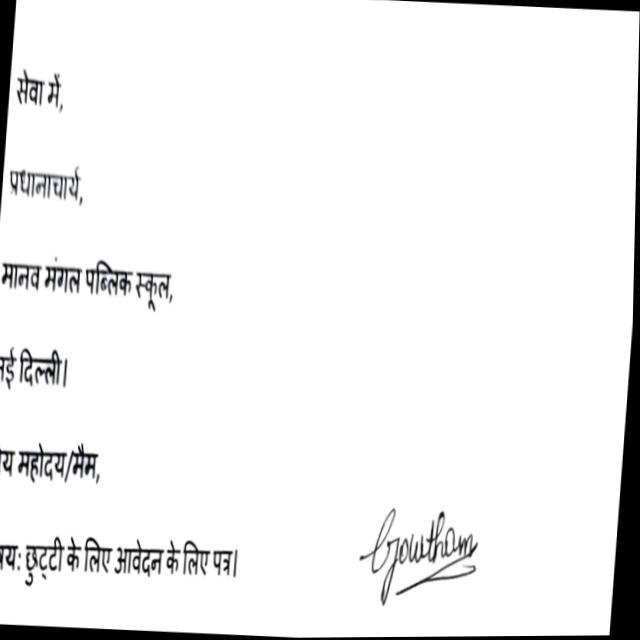 सेवा में,
प्रधानाचार्य,
मानव मंगल पब्लिक स्कूल,
नई दिल्ली।
महोदय/मैम,
छुट्टी के लिए आवेदन के लिए पत्र।
Gowtham